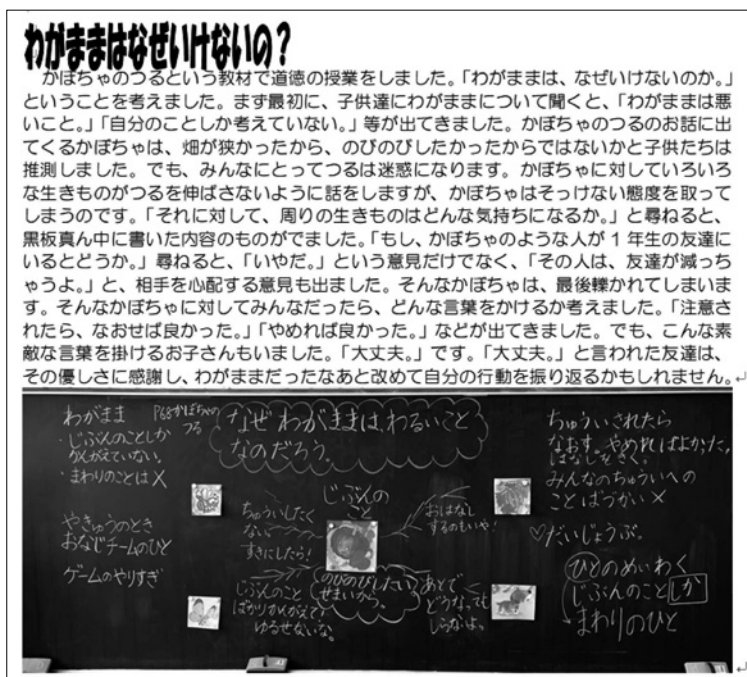 わがままはなぜいけないの？
かぼちゃのつるという教材で道徳の授業をしました。「わがままは、なぜいけないのか。」
ということを考えました。まず最初に、子供達にわがままについて聞くと、「わがままは悪
いこと。」「自分のことしか考えていない。」等が出てきました。かぼちゃのつるのお話に出
てくるかぼちゃは、畑が狭かったから、のびのびしたかったからではないかと子供たちは
推測しました。でも、みんなにとってつるは迷惑になります。かぼちゃに対していろいろ
な生きものがつるを伸ばさないように話をしますが、かぼちゃはそっけない態度を取って
しまうのです。「それに対して、周りの生きものはどんな気持ちになるか。」と尋ねると、
黒板真ん中に書いた内容のものがでました。「もし、かぼちゃのような人が１年生の友達に
いるとどうか。」尋ねると、「いやだ。」という意見だけでなく、「その人は、友達が減っち
ゃうよ。」と、相手を心配する意見も出ました。そんなかぼちゃは、最後轢かれてしまいま
す。そんなかぼちゃに対してみんなだったら、どんな言葉をかけるか考えました。「注意さ
れたら、なおせば良かった。」「やめれば良かった。」などが出てきました。でも、こんな素
敵な言葉を掛けるお子さんもいました。「大丈夫。」です。「大丈夫。」と言われた友達は、
その優しさに感謝し、わがままだったなあと改めて自分の行動を振り返るかもしれません。
わがまま
・じぶんのことしか
かんがえていない。
・まわりのことは×
やきゅうのとき
おなじチームのひと
ゲームのやりすぎ
P68かぼちゃの
つる
なぜわがままは、わるいこと
なのだろう。
じぶんの
こと
ちゅういしたく
ない
すきにしたら！
おはなし
するのもいや！
じぶんのこと
ばかりかんがえて
ゆるせないな。
のびのびしたい
せまいから。
あとで
どうなっても
しらないよ。
ちゅういされたら
なおす。やめればよかった。
みんなのちゅういへの
ことばづかい×
♡だいじょうぶ。
ひとのめいわく
じぶんのことしか
まわりのひと